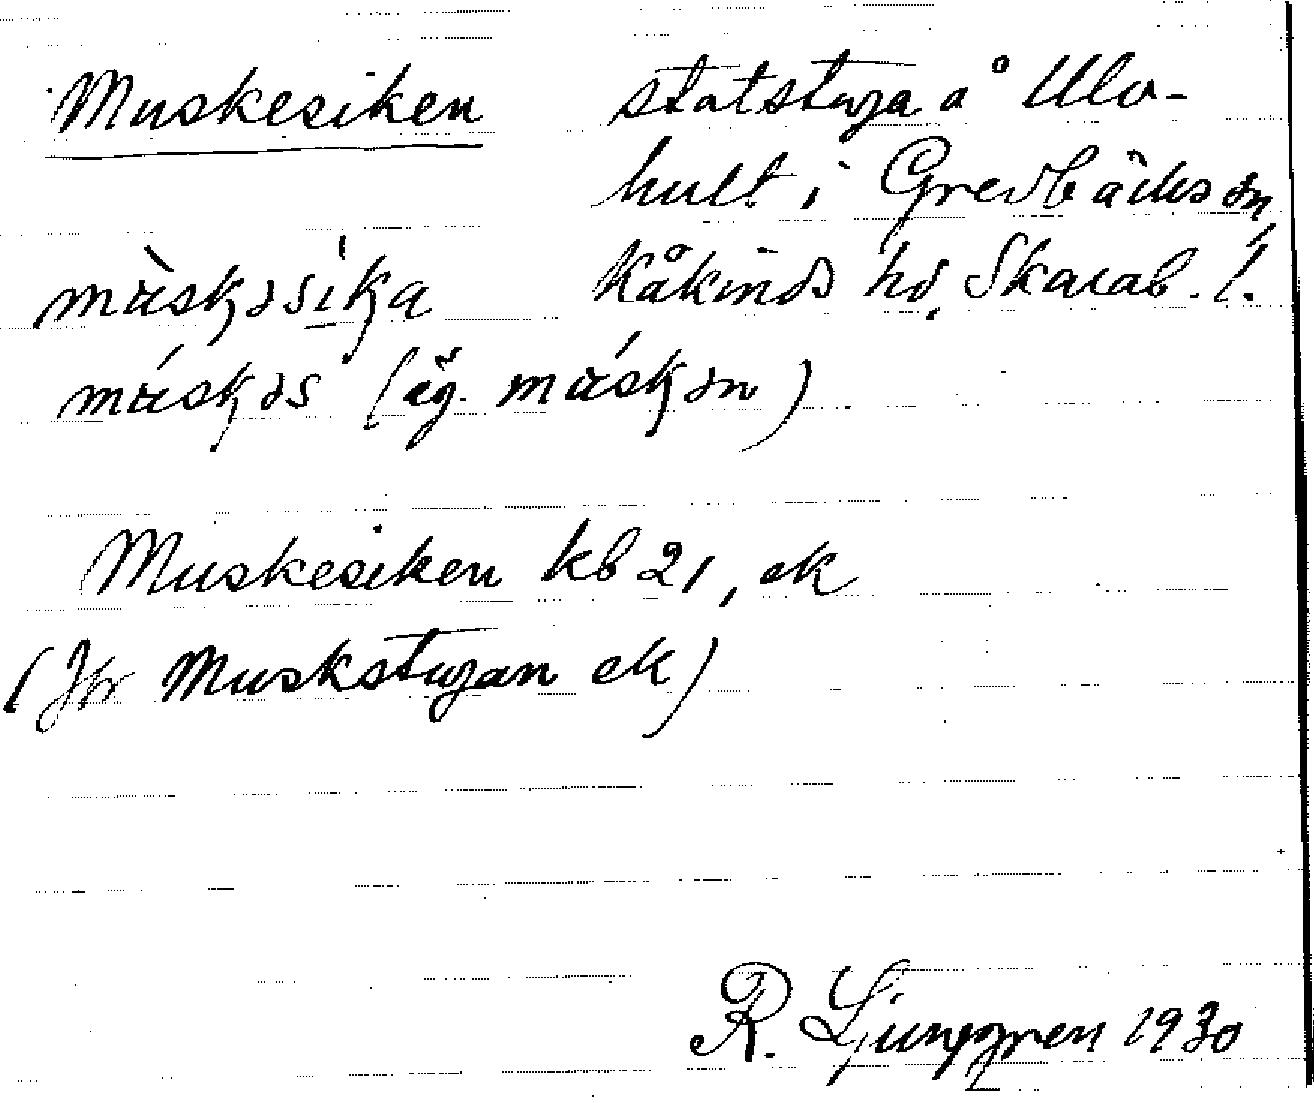 Muskesiken statstuga å Ulv-
hult i Grevbäcks sn,
Kåkinds hd, Skarab. l.
(äg.
Muskesiken kb 21, ek
(Jfr Muskstugan ek)
R. Ljunggren 1930